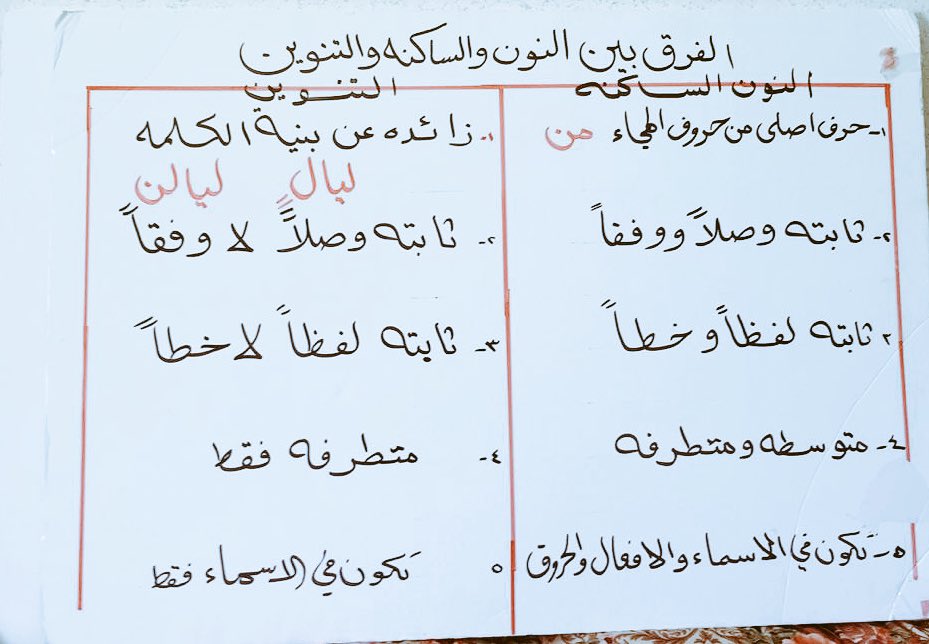 الفرق بين النون والساكنه والتنوين
النون الساكنه
التنوين
١- حرف اصلى من حروف الهجاء من
١- زائده عن بنية الكلمه
ليالٍ ليالن
٢- ثابته وصلاً ووقفاً
٢- ثابته وصلاً لا وقفاً
٢ ثابته لفظاً وخطاً
٣- ثابته لفظاً لا خطاً
٤- متوسطه ومتطرفه
٤- متطرفه فقط
٥- تكون في الاسماء والافعال والحروق
٥ تكون في الاسماء فقط